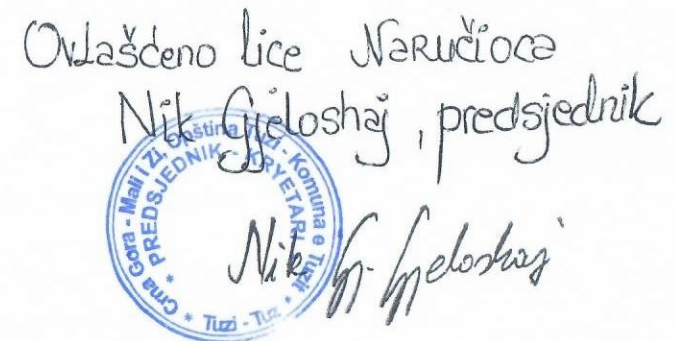 Ovlašćeno lice Naručioca
Nik Gjeloshaj, predsjednik
Crna Gora - Mali i Zi, Opština Tuzi - Komuna e Tuzit *
* PREDSJEDNIK - KRYETARI *
* Tuzi - Tuz *
Nik Gj. Gjeloshaj